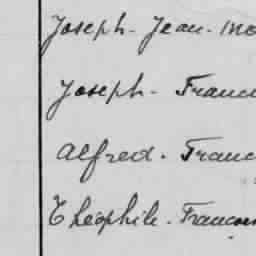 Joseph - Jean - Mo
Joseph - Franc
Alfred - Franc
Théophile - Francois